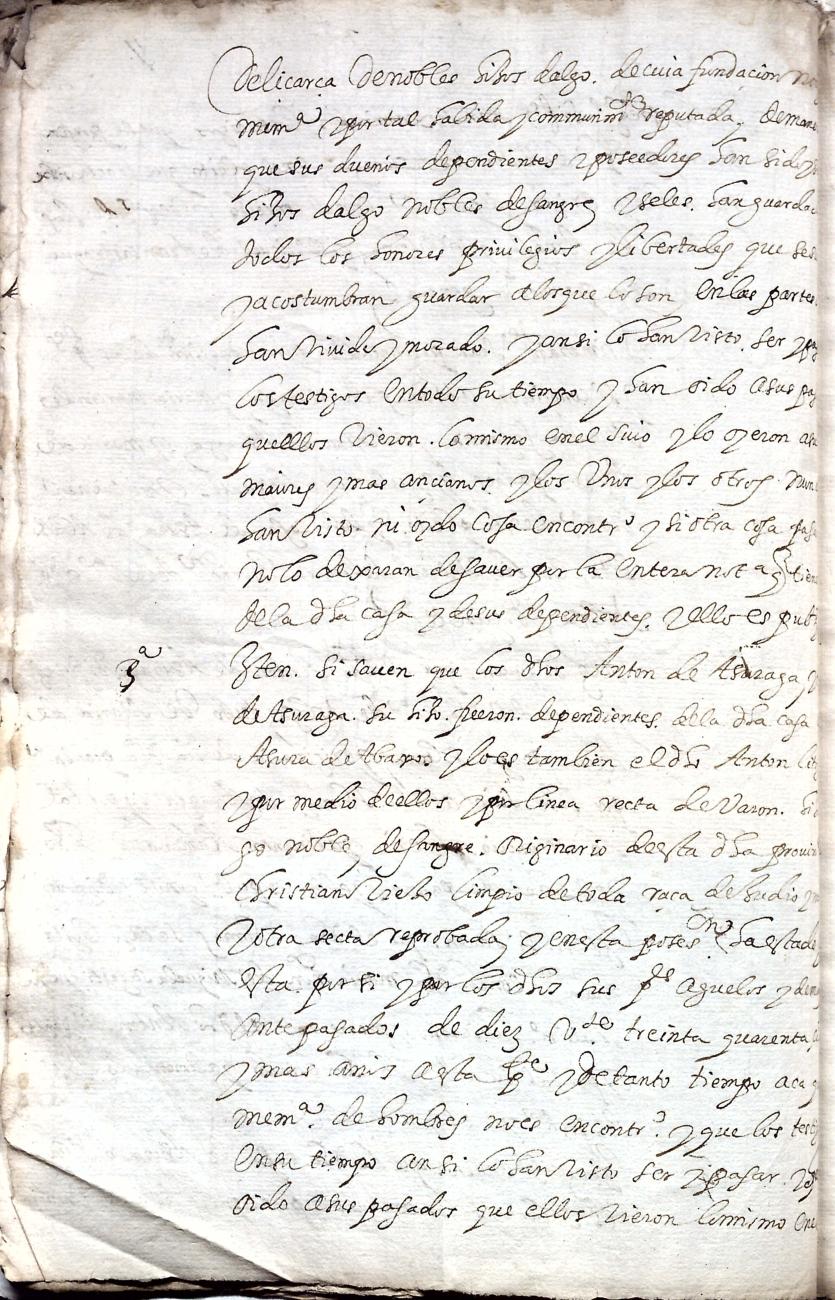 Delicarça de nobles hijos dalgo. de cuia fundacion no
mem.ª y por tal habida y communm.te reputada, de man
que sus dueños dependientes y poseedores han sido
hijos dalgo nobles de sangre y seles. han guarda
todos los honores privilegios y libertades que se
y acostumbran guardar a los que lo son en las partes
han vivido y morado. y ansi lo han visto ser y pa
los testigos en todo su tiempo y han oido a sus pa
quellos vieron. lo mismo en el suio y lo oyeron a
maiores y mas ancianos y los unos y los otros. nun
han visto ni oydo cosa en contr.º y si otra cosa pasa
no lo dexaran de saver por la entera not.ª q tien
de la dha casa y de sus dependientes. y ello es pub
3ª Yten. si saven que los dhos Anton de Asuraga
de Asuraga. su hijo. fueron. dependientes de la dha casa
Asura de y lo es tambien el dho Anton
y por medio de ellos y por linea recta de varon. hi
go noble, de sangre. originario de esta dha provin
Christiano viejo limpio de toda raça de Judio
y otra secta reprobada; y en esta poses.on ha estado
esta por si y por los dhos sus p.es aguelos y dem
antepasados de diez v.te treinta quarenta
y mas años a esta p.te y de tanto tiempo aca q
mem.ª de hombres no es en contr.º y que los testi
en su tiempo ansi lo han visto ser y pasar.
oido a sus pasados que ellos vieron lo mismo en